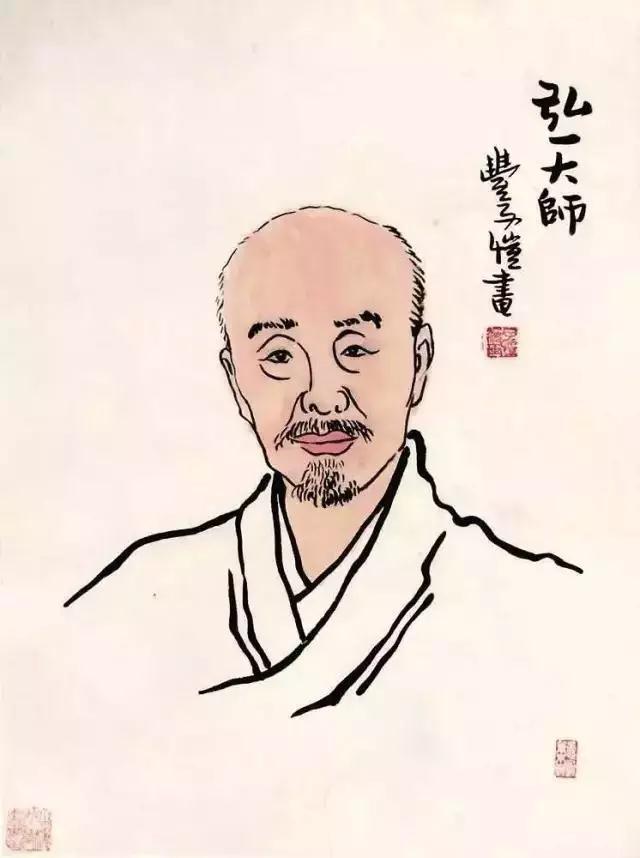 弘一大師
豐子愷畫